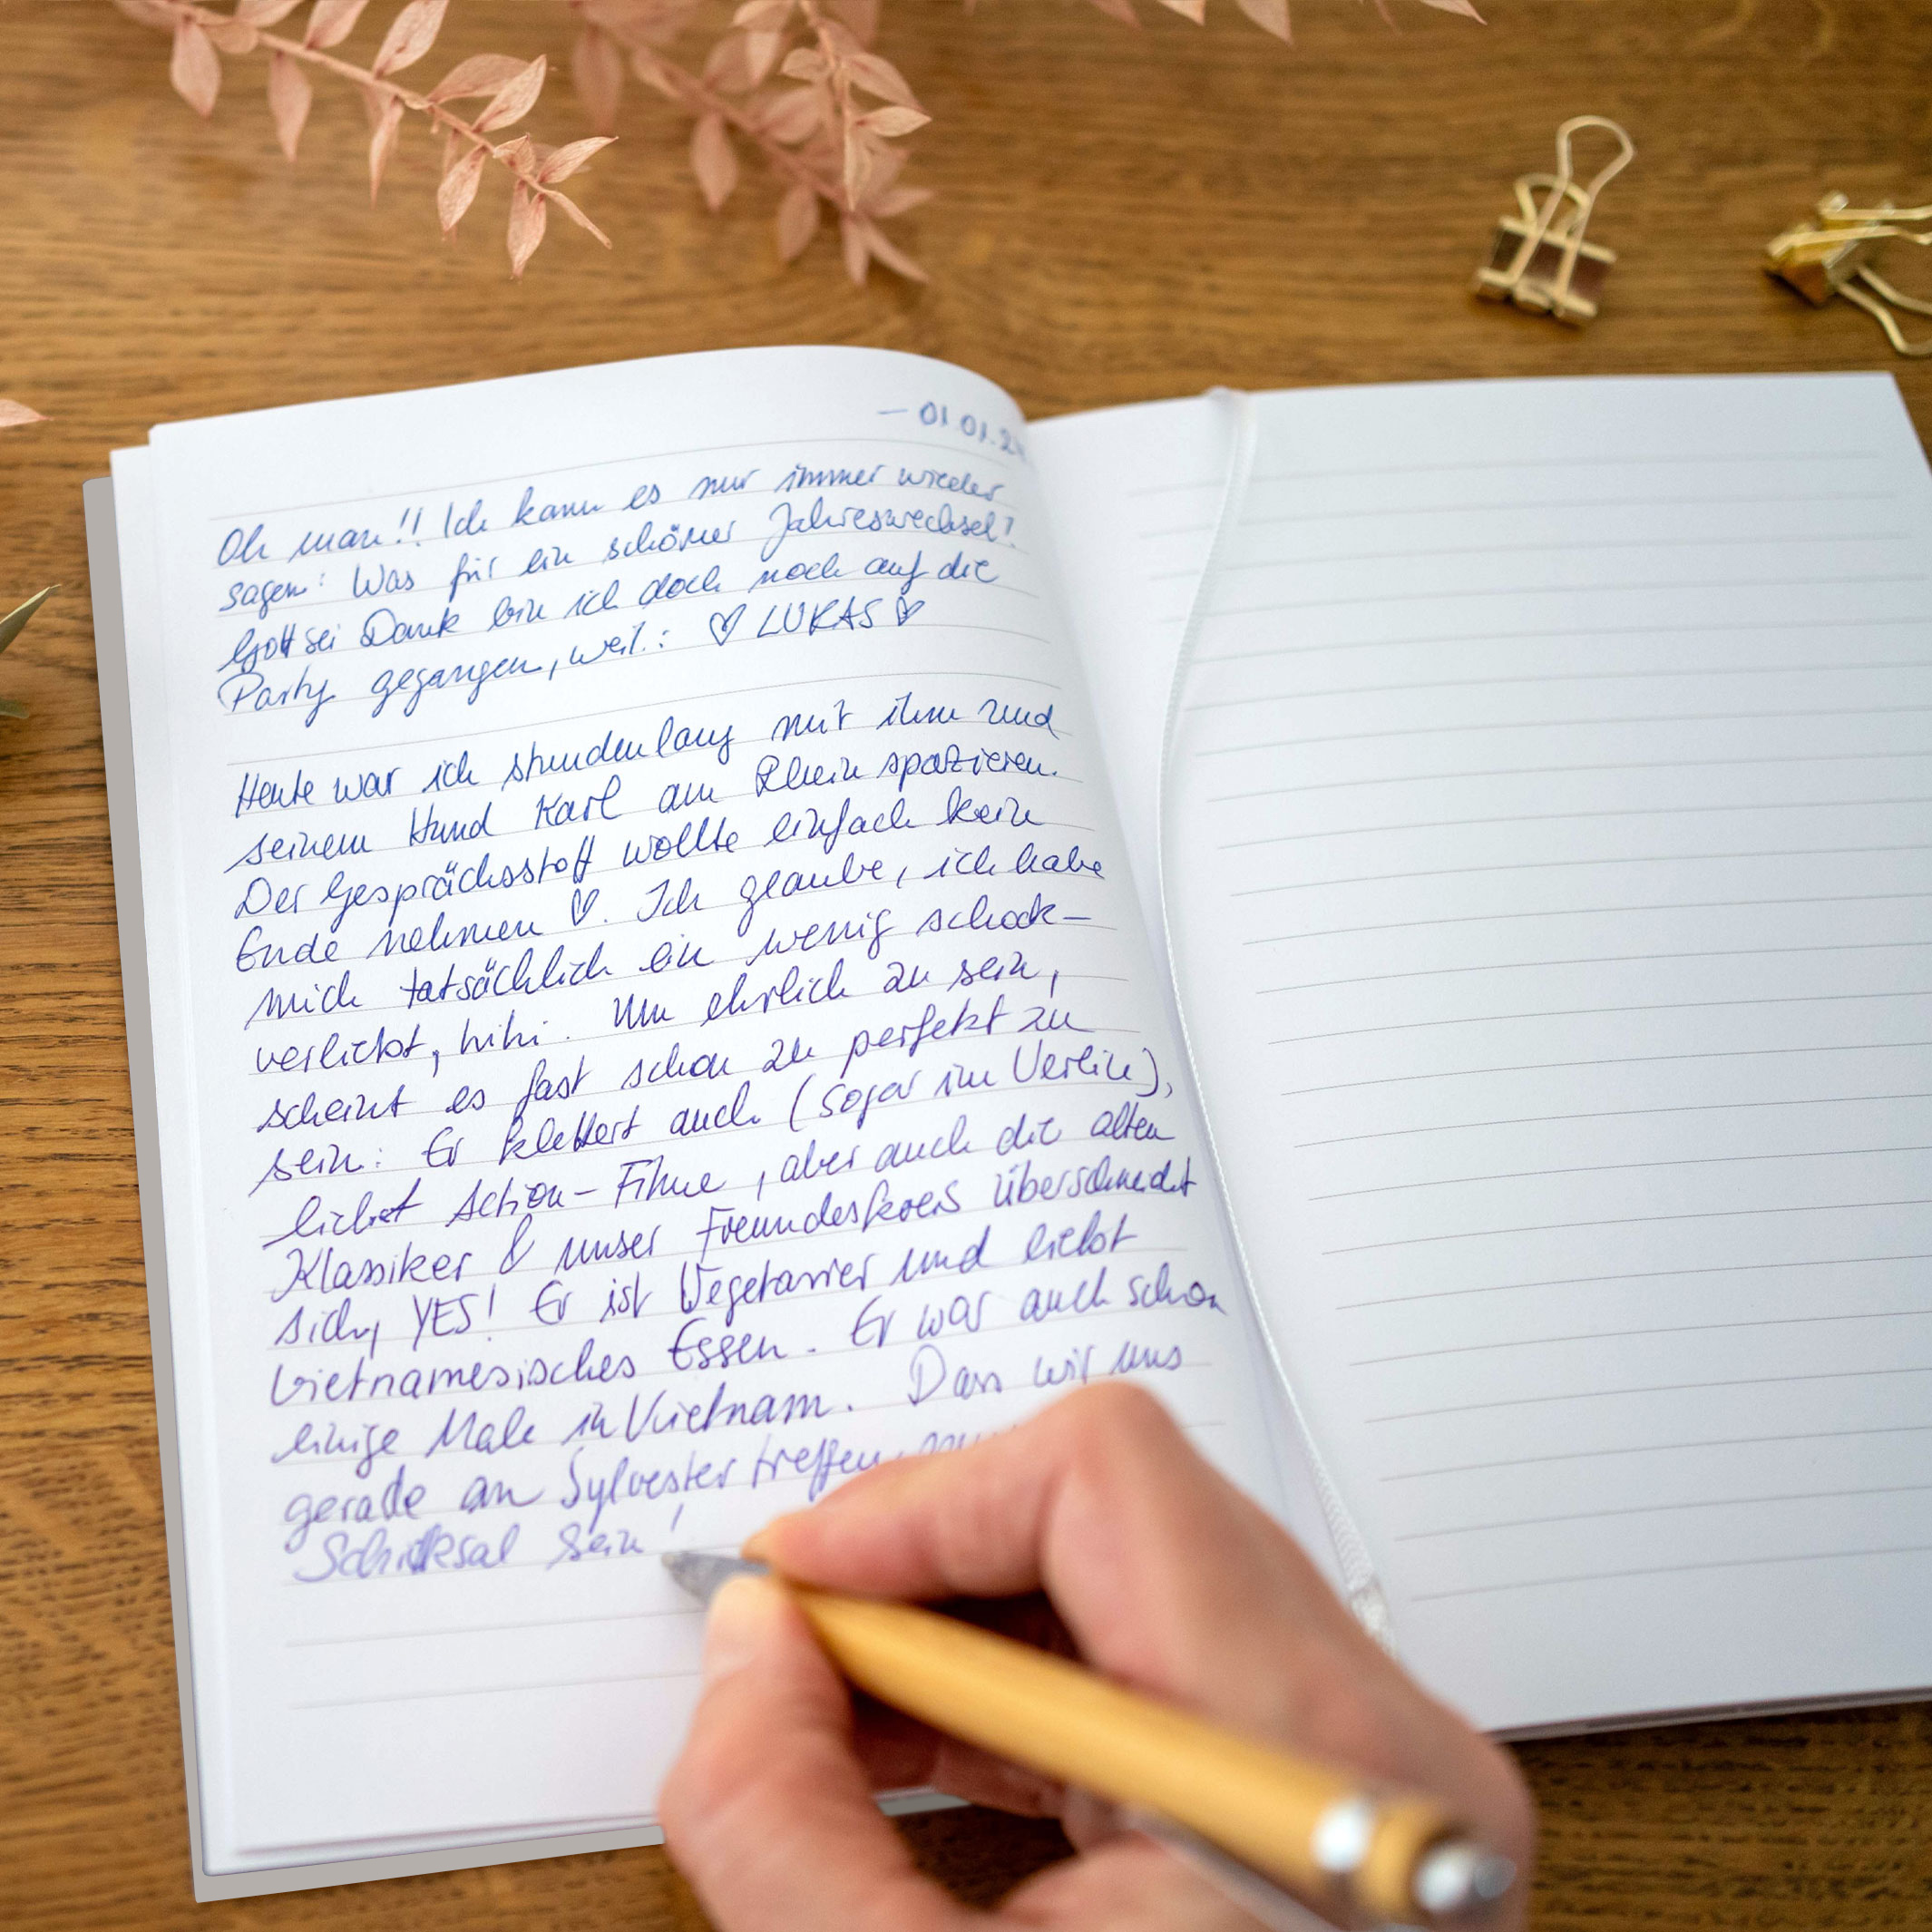 — 01.01.2
Oh man!! Ich kann es nur immer wieder
sagen: Was für ein schöner Jahreswechsel!
Gott sei Dank bin ich doch noch auf die
Party gegangen, weil: ♡ LUKAS ♡
Heute war ich stundenlang mit ihm und
seinem Hund Karl am Rhein spazieren.
Der Gesprächsstoff wollte einfach kein
Ende nehmen ♡. Ich glaube, ich habe
mich tatsächlich ein wenig schock-
verliebt, hihi. Um ehrlich zu sein,
scheint es fast schon zu perfekt zu
sein: Er klettert auch (sogar im Verein),
liebt Action-Filme, aber auch die alten
Klassiker & unser Freundeskreis überschneidet
sich, YES! Er ist Vegetarier und liebt
vietnamesisches Essen. Er war auch schon
einige Male in Vietnam. Dass wir uns
gerade an Sylvester treffen,
Schicksal sein!